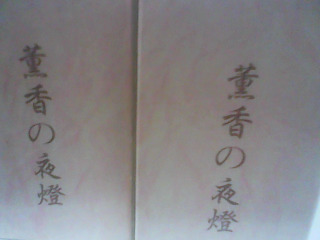 薫香の夜燈
薫香の夜燈